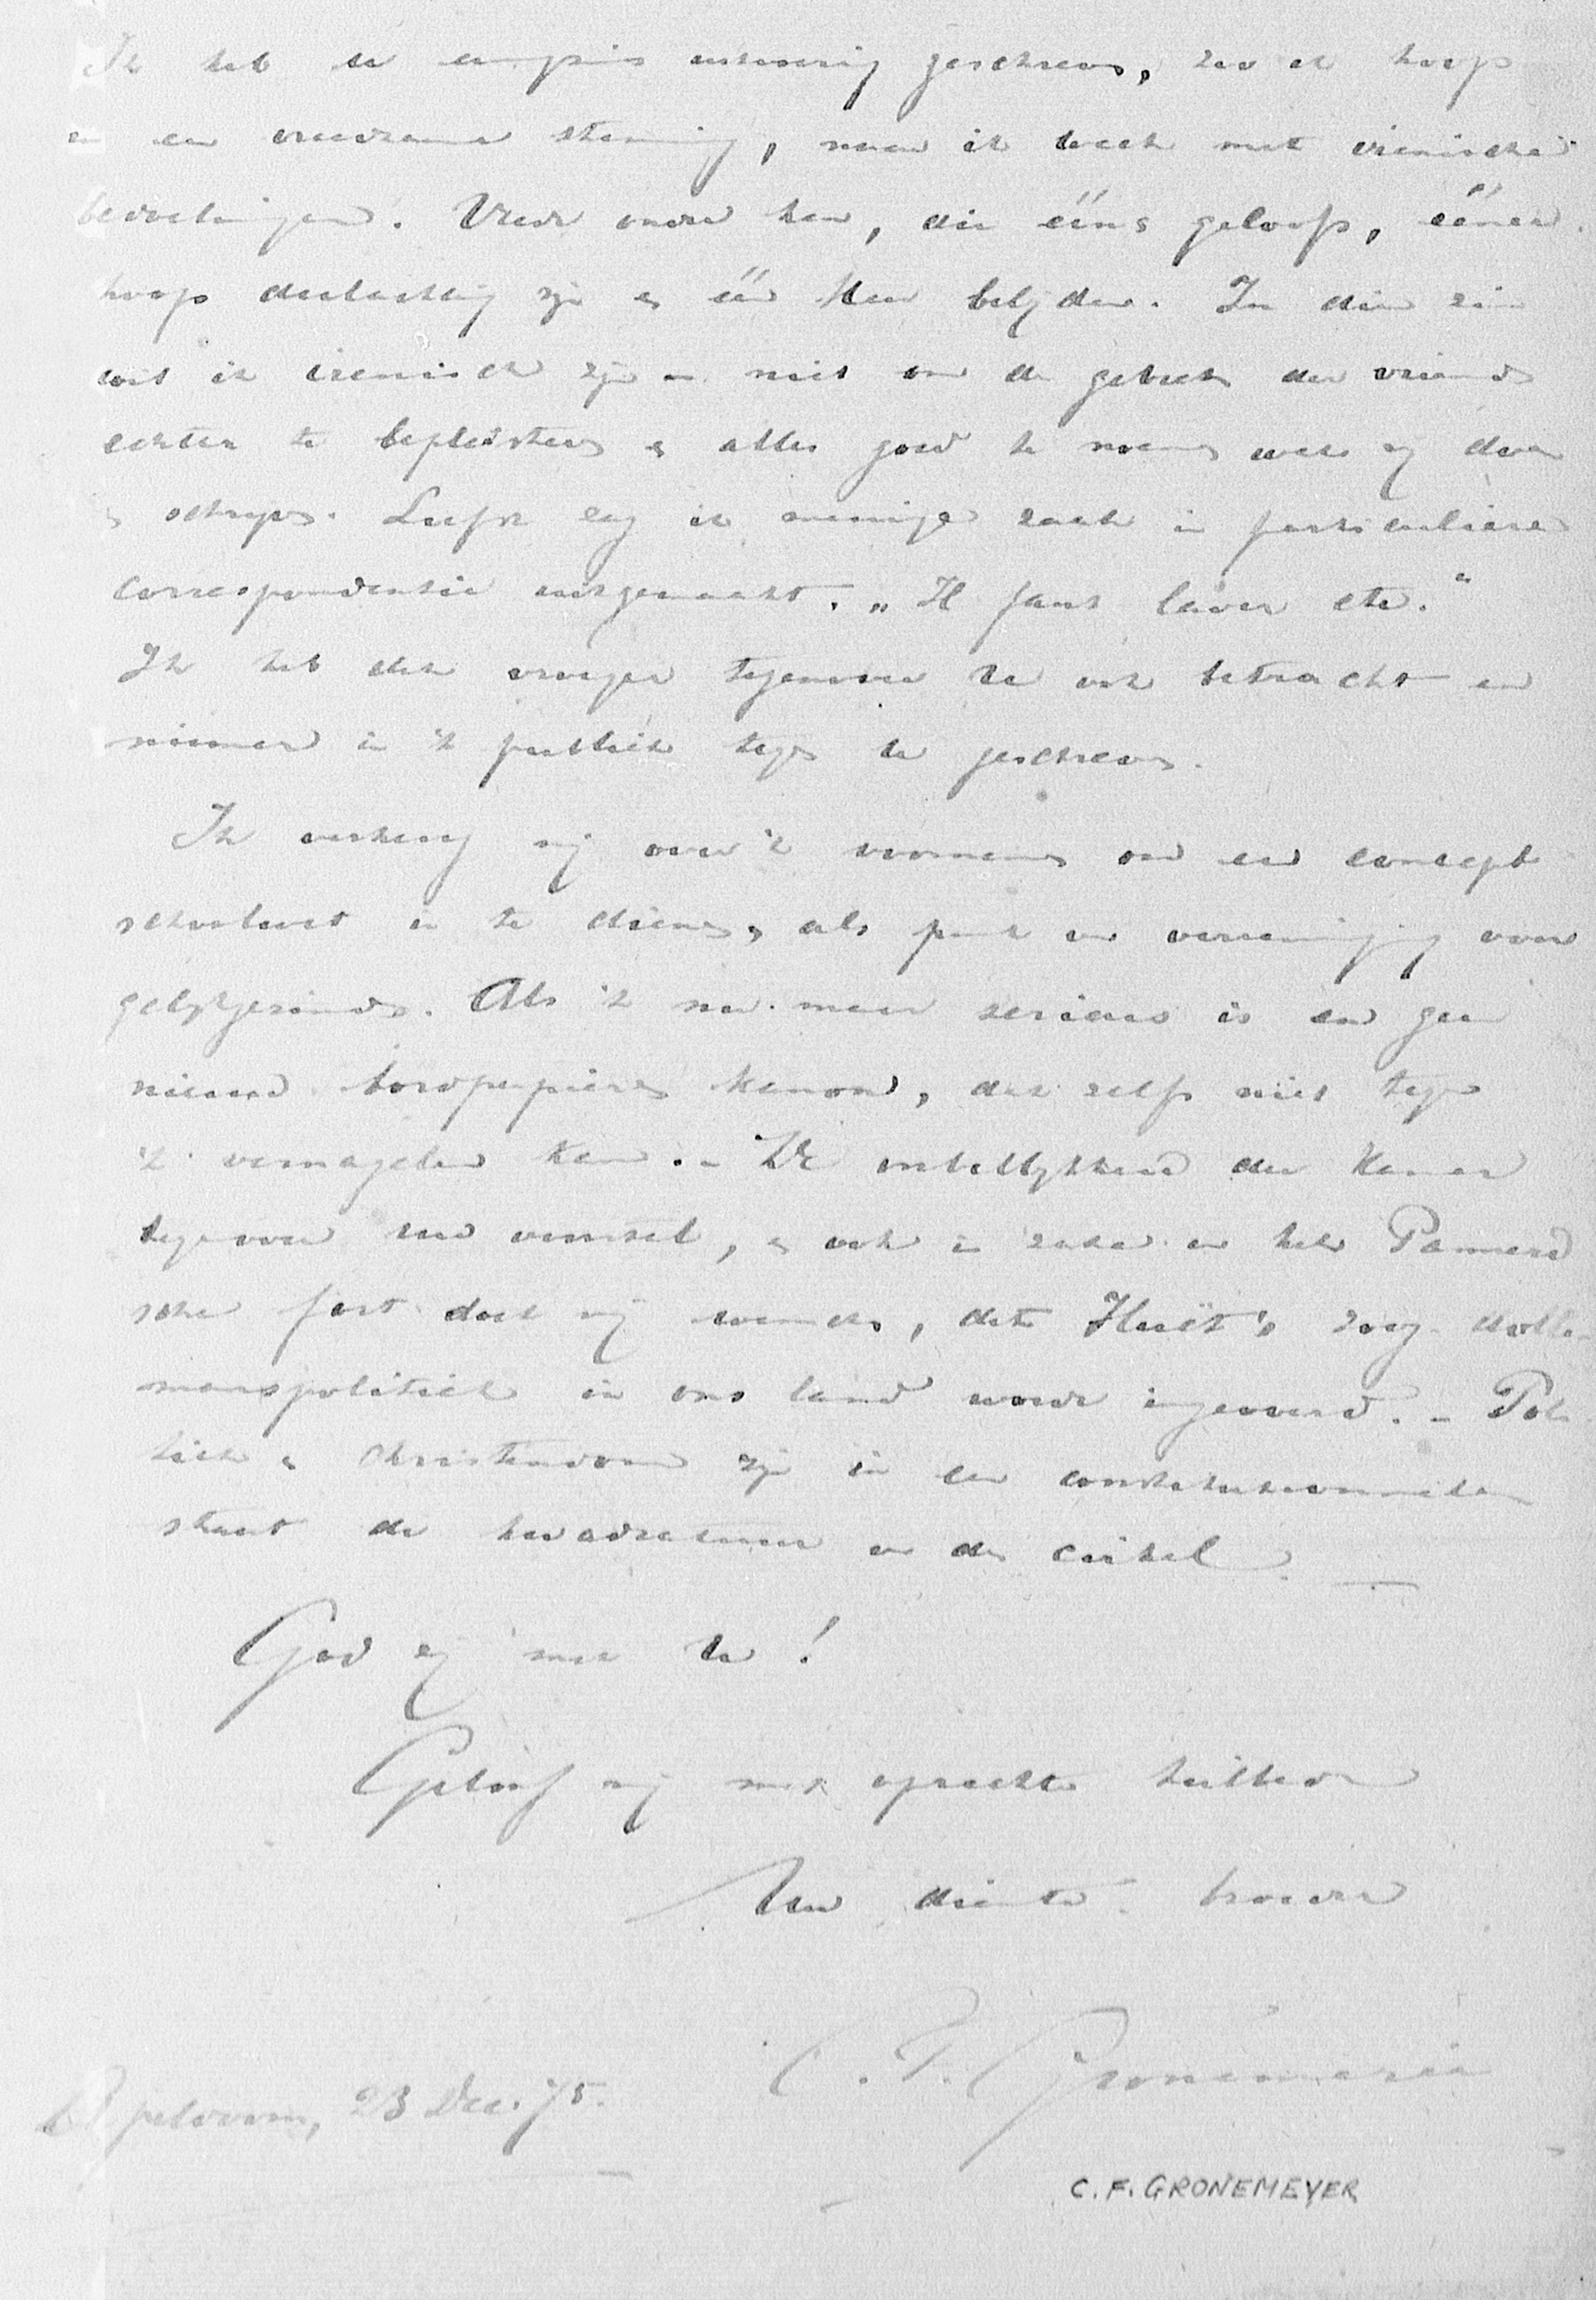 Ik heb U enigzins uitvoerig geschreven, zoo ik hoop
in een vreedzame stemming, maar ik ook met irenische
bedoelingen. Vrede onder hen, die ééns geloofs, ééner
hoop deelachtig zijn & één Heer belijden. In dien zin
wil ik irenisch zijn – niet om de gebreken der vrienden
echter te bepleisteren & alles goed te noemen wat zij doen
& schrijven. Liefst zag ik menige zaak in particuliere
correspondentie uitgemaakt. „Il faut laver etc."
Ik heb dit vroeger tegenover U ook betracht en
nimmer in 't publiek tegen U geschreven.
Ik verheug mij over 't voornemen om een concept
schoolwet in te dienen, als punt van vereeniging voor
gelijkgezinden. Als 't nu maar serieus is en geen
nieuw bordpapieren kanon, dat zelfs niet tegen
't vernagelen kan. – De onbillijkheid der Kamer
tegenover uw voorstel, & ook in zake van het Pannerd
sche fort doet mij wenschen, dat Huët's zoog. dolle
manspolitiek in ons land worde ingevoerd. – Poli
tiek & Christendom zijn in een constitutioneelen
staat de kwadratuur van den cirkel.
God zij met U!
Geloof mij met oprechte heilbede
Uw dienstw. broeder
C. F. Gronemeijer
Apeldoorn, 23 Dec. 75.
C. F. GRONEMEYER